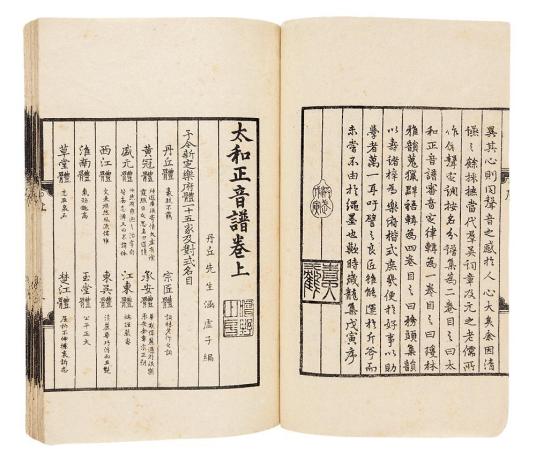 異其心則同聲音之感於人心大矣余因清
讌之餘採摭當代羣英詞章及元之老儒所
作依聲定調按名分譜集為二卷目之曰太
和正音譜審音定律輯為四卷目之曰瓊林
雅韻蒐獵群語輯為四卷目之曰務頭集韻
以壽諸梓為樂府楷式庶幾便於好事以助
學者萬一耳吁譬之良匠雖能運於斤斧而
未嘗不由於繩墨也歟時歲龍集戊寅序
太和正音譜卷上
丹丘先生涵虛子編
予今新定樂府體一十五家及對式名目
丹丘體 豪放不羈 宗匠體 詞林老作之詞
黃冠體 神遊廣漠寄情太虛有餐霞服日之思名曰道情 承安體 華觀偉麗過於泆樂承安金章宗正朝
盛元體 快然有雍熙之治字句皆無忌憚又曰不諱體 江東體 端謹嚴密
西江體 文采煥然風流儒雅 東吳體 清麗華巧浮而且艷
淮南體 氣勁趣高 玉堂體 公平正大
草堂體 志在泉石 楚江體 屈抑不伸攄衷訴志